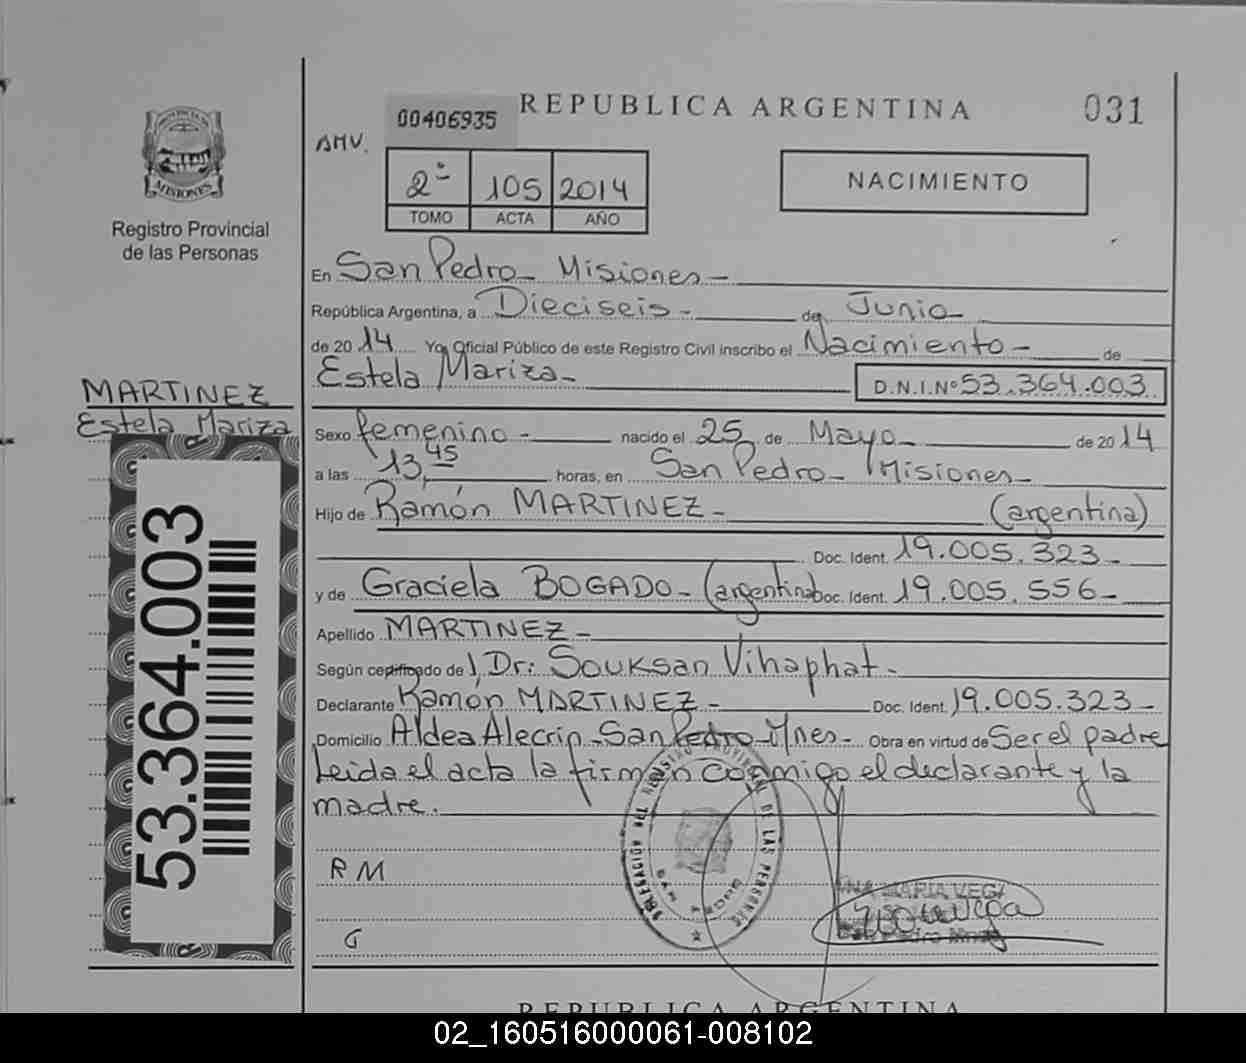 REPUBLICA ARGENTINA
031
00406935
AMV.
2º 105 2014
TOMO ACTA AÑO
NACIMIENTO
PROVINCIA DE MISIONES
Registro Provincial
de las Personas
En San Pedro - Misiones -
República Argentina, a Dieciseis - de Junio
de 2014 Yo, Oficial Público de este Registro Civil inscribo el Nacimiento - de
Estela Mariza - D.N.I.Nº 53.364.003
MARTINEZ
Estela Mariza
53.364.003
Sexo femenino - nacido el 25 de Mayo - de 2014
a las 13,45 horas, en San Pedro - Misiones -
Hijo de Ramón MARTINEZ - (argentina)
Doc. Ident. 19.005.323 -
y de Graciela BOGADO - (argentina) Doc. Ident. 19.005.556 -
Apellido MARTINEZ -
Según certificado de Dr: Souksan Vihaphat -
Declarante Ramón MARTINEZ - Doc. Ident. 19.005.323 -
Domicilio Aldea Alecrin - San Pedro - Mnes - Obra en virtud de Ser el padre
Leida el acta la firman conmigo el declarante y la
madre.
DELEGACION DEL REGISTRO PROVINCIAL DE LAS PERSONAS
SAN PEDRO
R M
G
ANA MARIA VEGA
San Pedro Mnes
REPUBLICA ARGENTINA
02_160516000061-008102